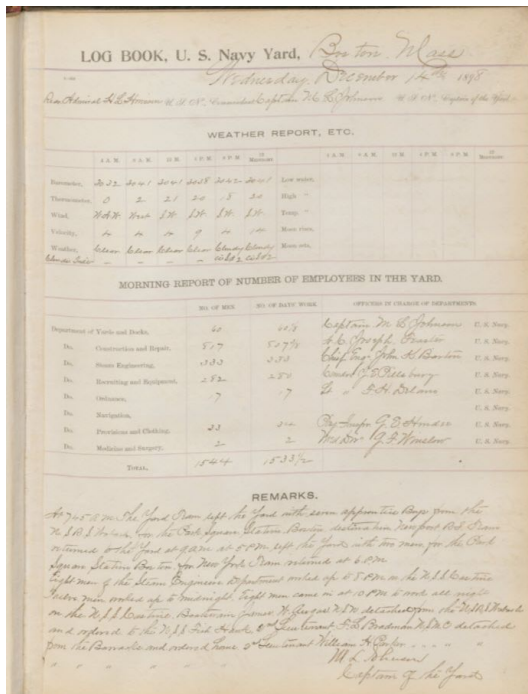 LOG BOOK, U. S. Navy Yard, Boston, Mass.
Wednesday, December 14th 1898
Rear Admiral H. L. Howison U. S. N., Commandant Captain M. L. Johnson U. S. N., Captain of the Yard.
WEATHER REPORT, ETC.
4 A. M. 8 A. M. 12 M. 4 P. M. 8 P. M. 12 Midnight 4 A. M. 8 A. M. 12 M. 4 P. M. 8 P. M. 12 Midnight
Barometer, 30.41 30.41 30.38 30.42 30.41 Low water,
Thermometer, 0 2 21 20 18 20 High "
Wind, West SW SW SW SW Temp. "
Velocity, 4 4 4 9 Moon rises,
Weather, Clear Clear Clear Clear Cloudy Cloudy Moon sets,
MORNING REPORT OF NUMBER OF EMPLOYEES IN THE YARD.
NO. OF MEN. NO. OF DAYS' WORK. OFFICERS IN CHARGE OF DEPARTMENTS.
Department of Yards and Docks, 60 Captain M L Johnson U. S. Navy.
Do. Construction and Repair, 507 Joseph U. S. Navy.
Do. Steam Engineering, 333 Chief Eng. John K. Barton U. S. Navy.
Do. Recruiting and Equipment, 252 250 J. E. Pillsbury U. S. Navy.
Do. Ordnance, 17 17 Lt " F. H. Delano U. S. Navy.
Do. Navigation, U. S. Navy.
Do. Provisions and Clothing, G. E. Hendee U. S. Navy.
Do. Medicine and Surgery, 2 2 G. F. Winslow U. S. Navy.
TOTAL, 1544 1533 1/2
REMARKS.
At 7.45 A M. The Yard Team left the Yard with seven apprentice Boys from the
U.S.R.S. Wabash for the Park Square Station Boston destination Newport R.I. Team
returned to the Yard at 9 A M. at 5 P.M. left the Yard with two men for the Park
Square Station Boston for New York Team returned at 6 P.M.
Eight men of the Steam Engineer Department worked up to 5 P.M. on the U.S.S.
men worked up to midnight. Eight men came in at 10 P.M. to work all night
on the U.S.S. Boatswain James W. U.S.N. detached from the U.S.R.S. Wabash
and ordered to the U.S.S. Fish Hawk. 2nd Lieutenant F. L. Bradman U.S.M.C. detached
from the Barracks and ordered home 2nd Lieutenant William H. " "
" " " " "
M L Johnson
Captain of the Yard